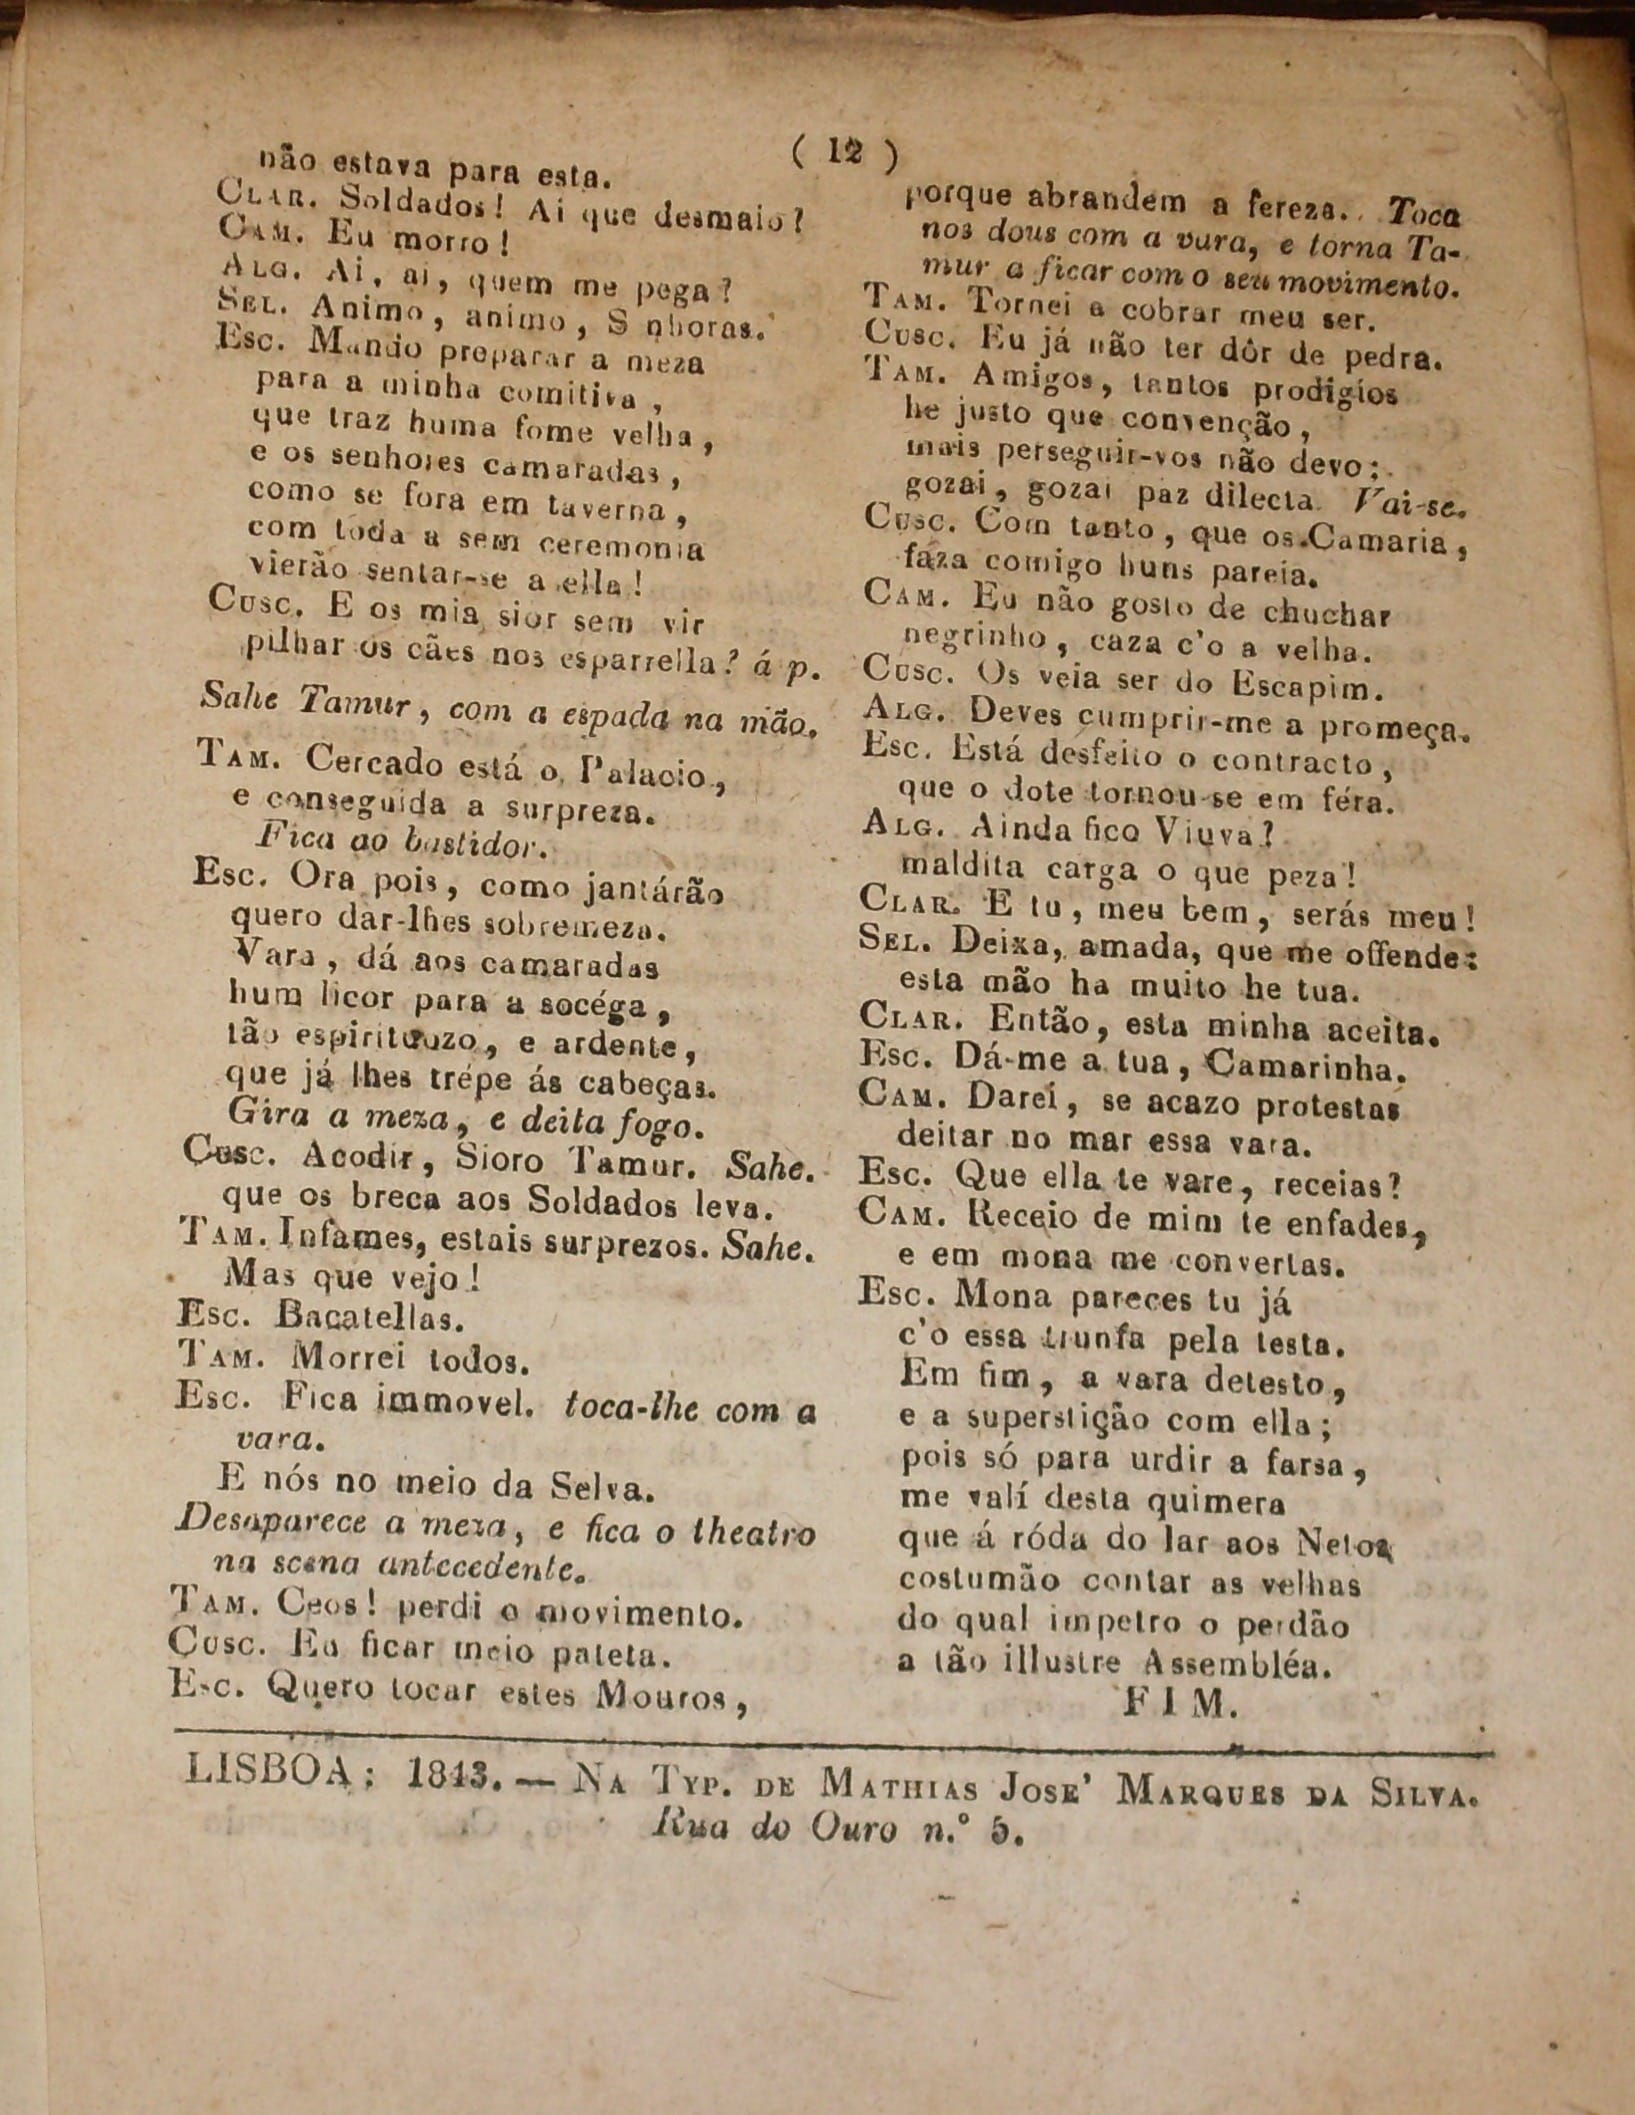 ( 12 )
não estava para esta.
CLAR. Soldados! Ai que desmaio?
CAM. Eu morro!
ALG. Ai, ai, quem me pega?
SEL. Animo, animo, S nhoras.
ESC. Mando preparar a meza
para a minha comitiva,
que traz huma fome velha,
e os senhores camaradas,
como se fora em taverna,
com toda a sem ceremonia
vierão sentar-se a ella!
CUSC. E os mia sior sem vir
pilhar os cães nos esparrella? á p.
Sahe Tamur, com a espada na mão.
TAM. Cercado está o Palacio,
e conseguida a surpreza.
Fica ao bastidor.
ESC. Ora pois, como jantárão
quero dar-lhes sobremeza.
Vara, dá aos camaradas
hum licor para a socéga,
tão espirituozo, e ardente,
que já lhes trépe ás cabeças.
Gira a meza, e deita fogo.
CUSC. Acodir, Sioro Tamur. Sahe.
que os breca aos Soldados leva.
TAM. Infames, estais surprezos. Sahe.
Mas que vejo!
ESC. Bacatellas.
TAM. Morrei todos.
ESC. Fica immovel. toca-lhe com a
vara.
E nós no meio da Selva.
Desaparece a meza, e fica o theatro
na scena antecedente.
TAM. Ceos! perdi o movimento.
CUSC. Eu ficar meio pateta.
ESC. Quero tocar estes Mouros,
porque abrandem a fereza. Toca
nos dous com a vara, e torna Ta-
mur a ficar com o seu movimento.
TAM. Tornei a cobrar meu ser.
CUSC. Eu já não ter dôr de pedra.
TAM. Amigos, tantos prodigios
he justo que convenção,
mais perseguir-vos não devo;
gozai, gozai paz dilecta. Vai-se.
CUSC. Com tanto, que os Camaria,
fáza comigo huns pareia.
CAM. Eu não gosto de chuchar
negrinho, caza c'o a velha.
CUSC. Os veia ser do Escapim.
ALG. Deves cumprir-me a promeça.
ESC. Está desfeito o contracto,
que o dote tornou-se em féra.
ALG. Ainda fico Viuva?
maldita carga o que peza!
CLAR. E tu, meu bem, serás meu!
SEL. Deixa, amada, que me offende:
esta mão ha muito he tua.
CLAR. Então, esta minha aceita.
ESC. Dá-me a tua, Camarinha.
CAM. Darei, se acazo protestas
deitar no mar essa vara.
ESC. Que ella te vare, receias?
CAM. Receio de mim te enfades,
e em mona me convertas.
ESC. Mona pareces tu já
c'o essa trunfa pela testa.
Em fim, a vara detesto,
e a superstição com ella;
pois só para urdir a farsa,
me valí desta quimera
que á róda do lar aos Netos
costumão contar as velhas
do qual impetro o perdão
a tão illustre Assembléa.
FIM.
LISBOA: 1843. — NA TYP. DE MATHIAS JOSE' MARQUES DA SILVA.
Rua do Ouro n.º 5.